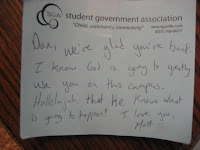 SGA
student government association
"Christ, community, connectivity"
Dan, we're glad you're back.
I know God is going to greatly
use you on this campus.
Hallelujah that He knows what
is going to happen! I love you,
Matt